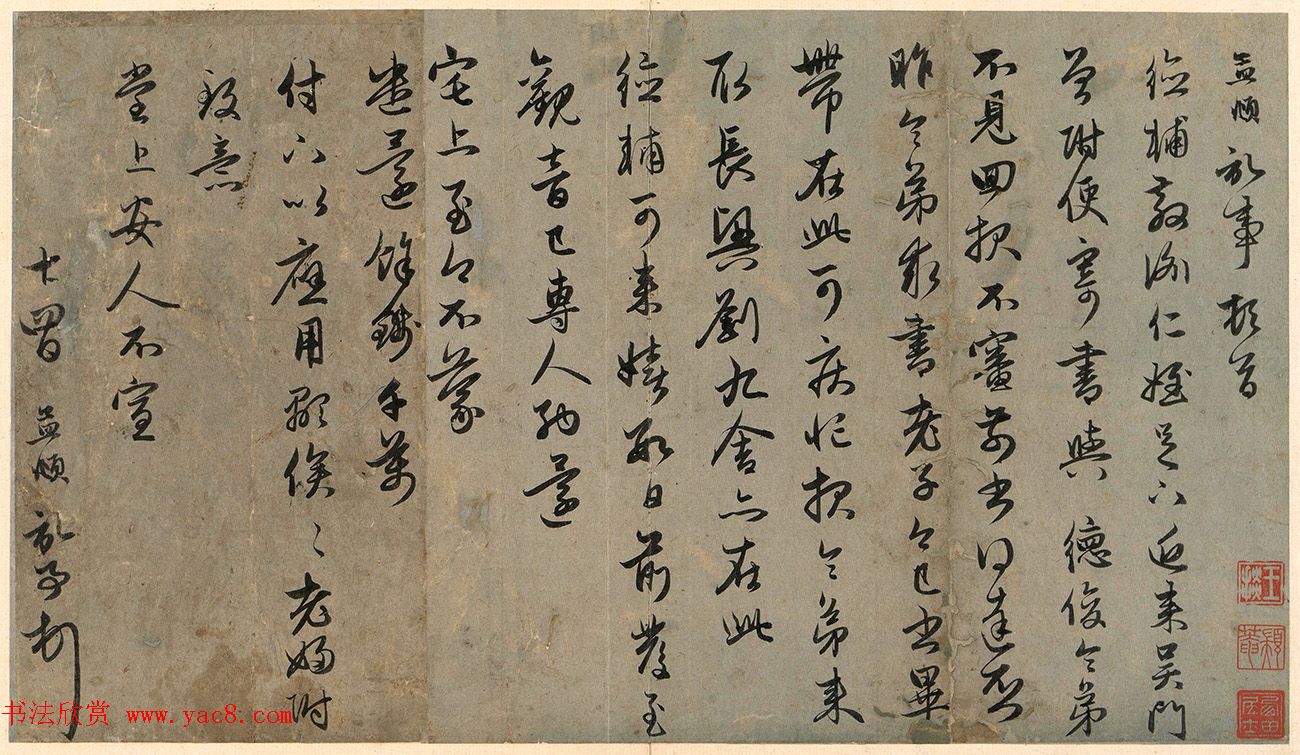 孟頫記事頓首
德輔教諭仁姪足下近來吳門
曾附便寄書與德俊令弟
不見回報不審前書得達否
昨令弟求書老子今已書畢
帶在此可疾忙報令弟來
取長興劉九舍亦在此
德輔可來嬉數日前發至
觀音已專人納還
宅上至今不蒙
遣還餘錢千萬
付下以應用顒俟〻老婦附
致意
堂上安人不宣
十四日 孟頫
书法欣赏 www.yac8.com